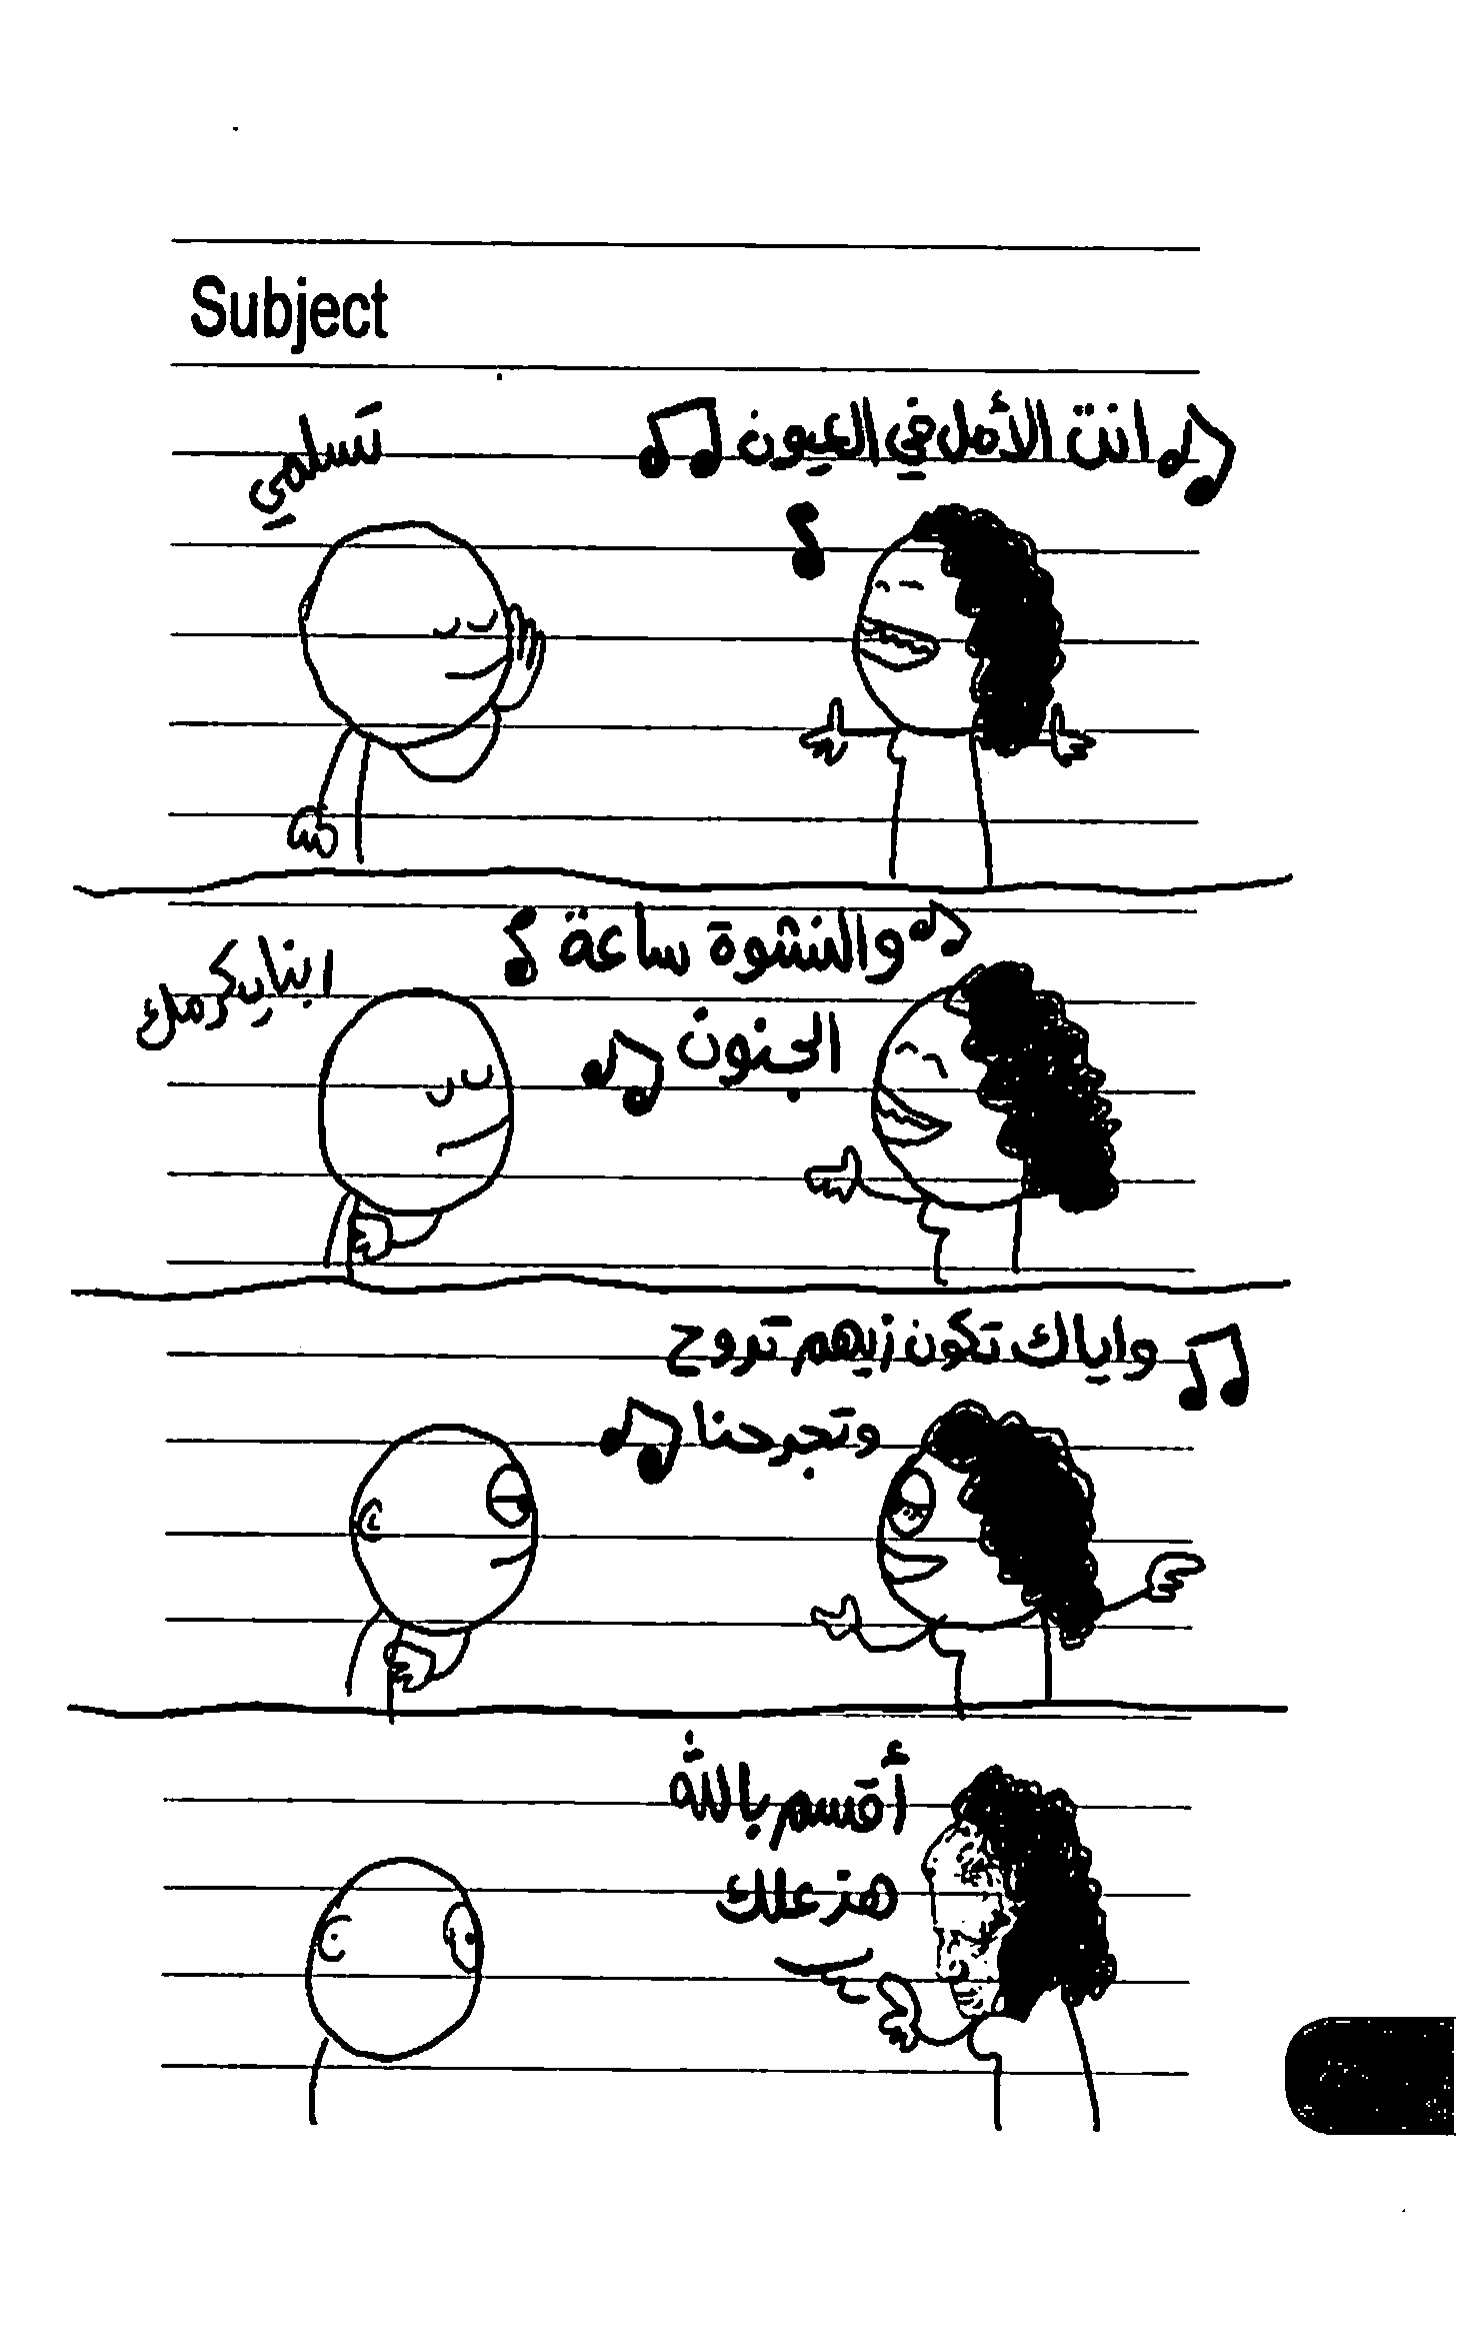 Subject
انت الأمل في العيون
تسلمي
والنشوة ساعة
الجنون
ابنا يكرمك
واياك تكون زيهم تروح
وتجرحنا
أقسم بالله
هزعلك